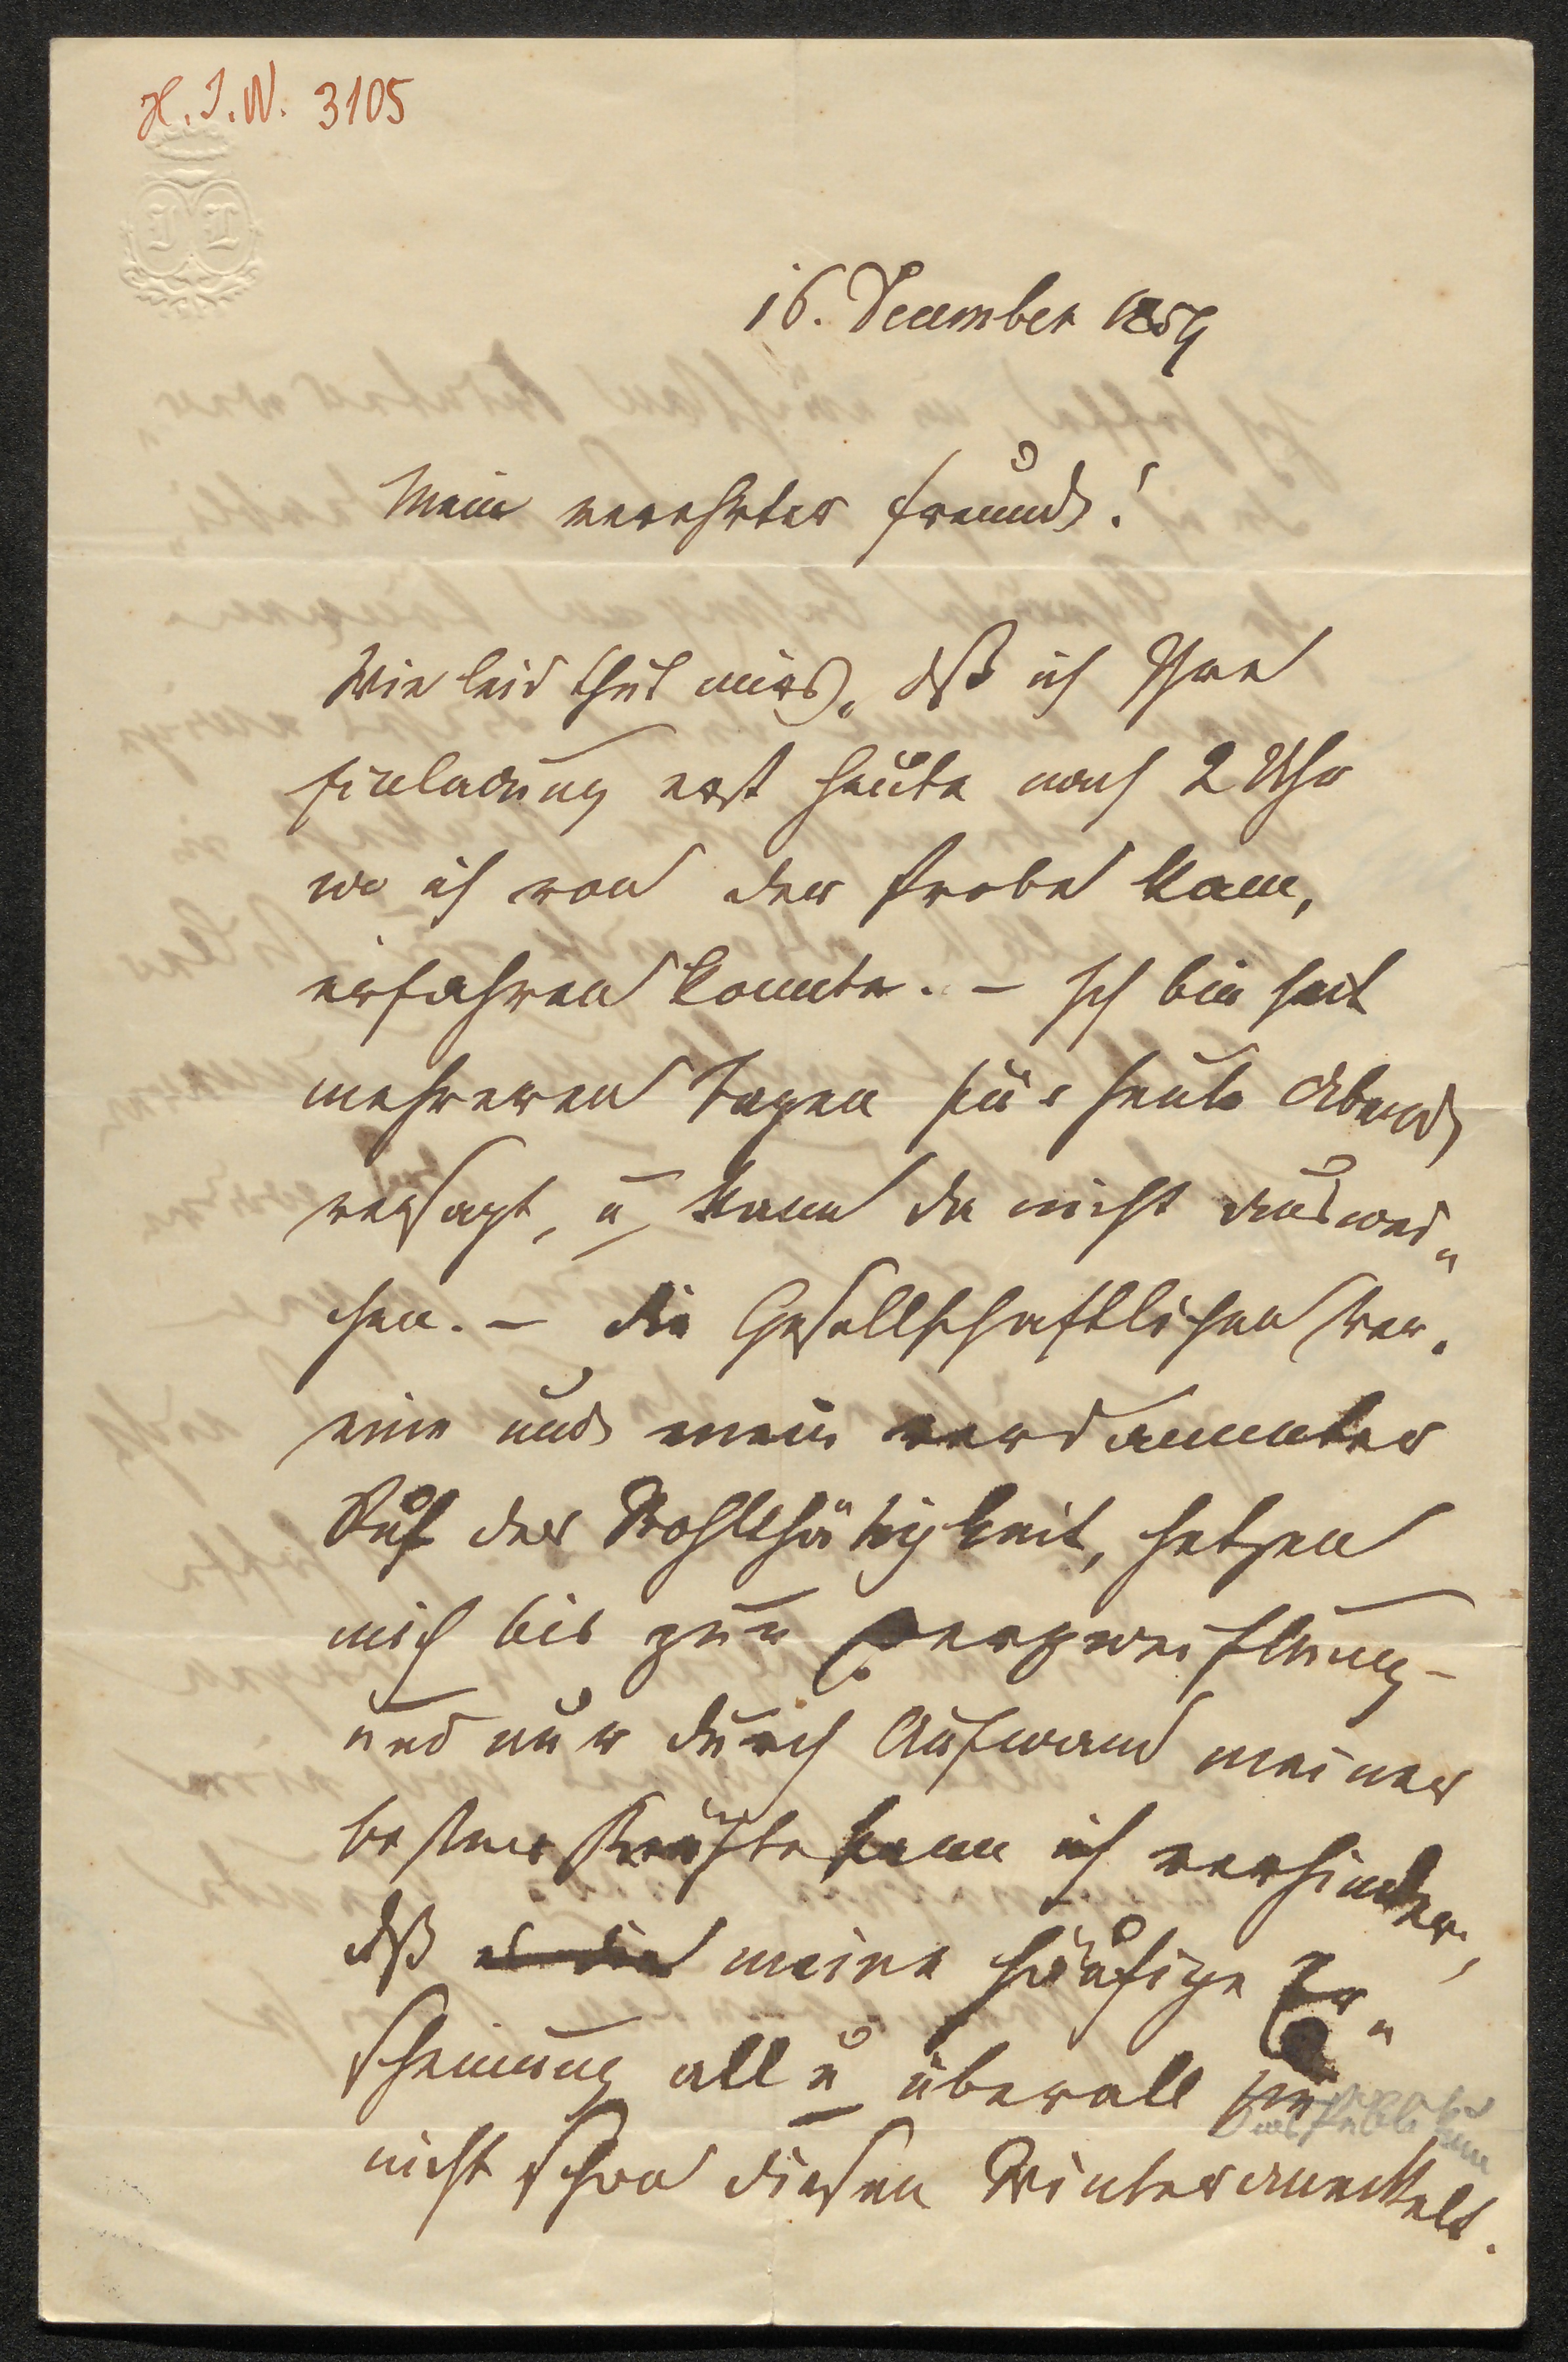 H. I. N. 3105
16. December 1859
Mein verehrter Freund!
Wie leid thut mirs, daß ich Ihre
Einladung erst heute nach 2 Uhr
wo ich von der Probe kam,
erfahren konnte. – Ich bin seit
mehreren Tagen für heute Abend
versagt, u kann da nicht auswei„
chen. – Die Gesellschaftlichen Ver„
eine und mein verdammter
Ruf der Wohlthätigkeit, hetzen
mich bis zur Verzweiflung –
und nur durch Aufwand meiner
besten Kräfte kann ich verhindern,
daß meine häufige Er„
scheinung all u überall
das Publikum
nicht schon diesen Winter aneckelt.